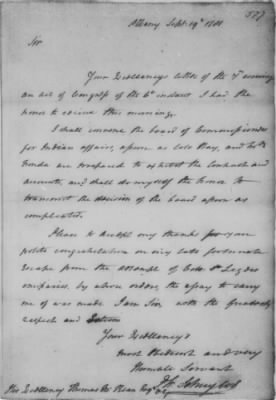 Albany Sept. 19th 1781
Sir
Your Excellency's letter of the 7th covering
an act of Congress of the 6th instant I had the
honor to receive this morning.
I shall convene the board of Commissioners
for Indian affairs, as soon as Colo Hay, and Mr
are prepared to the Contracts and
accounts, and shall do myself the honor to
transmit the decision of the board as soon as
compleated.
Please to accept my thanks for your
polite congratulation on my late fortunate
escape from the attempt of
emissaries, by whose orders, the essay to carry
me off was made I am Sir, with the greatest
respect and Esteem
Your Excellency's
most Obedient and very
Humble Servant
Ph. Schuyler
His Excellency Thomas Mc Kean Esqr &c